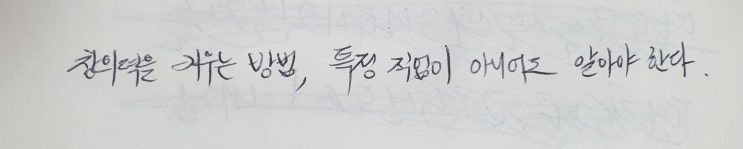 창의력을 키우는 방법, 특정 직업이 아니어도 알아야 한다.